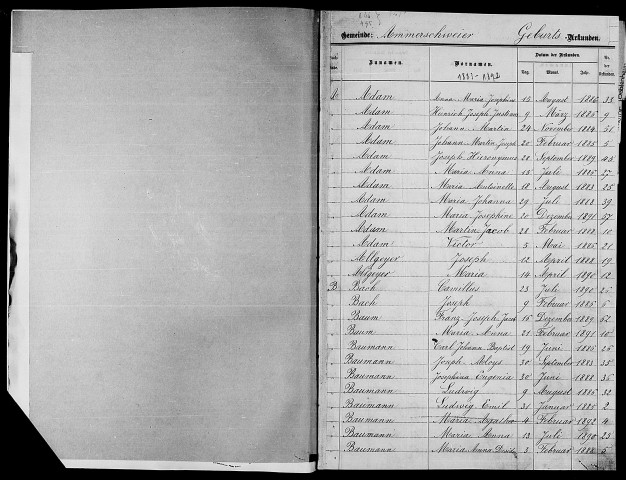 Gemeinde: Ammerschweier Geburts-Urkunden.
Datum der Urkunden. Nr. der Urkunden.
Zunamen. Vornamen. Tag. Monat. Jahr.
1881-1892
A Adam Anna Maria Josephine 13 August 1886 33
Adam Heinrich Joseph 9 März 1885 9
Adam Johann Martin 24 November 1884 51
Adam Johann Martin Joseph 20 Februar 1885 5
Adam Joseph Hieronymus 20 September 1889 43
Adam Maria Anna 13 Juli 1885 27
Adam Maria Antoinette 18 August 1883 25
Adam Maria Johanna 29 Juli 1888 39
Adam Maria Josephine 20 Dezember 1891 57
Adam Martin Jacob 28 Februar 1888 10
Adam Victor 5 Mai 1885 21
Allgeyer Joseph 12 April 1888 19
Allgeyer Maria 14 April 1890 12
B Bach Camillus 23 Juli 1890 25
Bach Joseph 9 Februar 1885 6
Baum Franz Joseph 15 Dezember 1889 52
Baum Maria Anna 21 Februar 1891 10
Baumann Carl Johann Baptist 19 Juni 1885 25
Baumann Joseph Aloys 30 September 1883 35
Baumann Josephina Eugenia 30 Juni 1888 35
Baumann Ludwig 9 August 1885 32
Baumann Ludwig Emil 31 Januar 1885 2
Baumann Maria Agatha 4 Februar 1892 4
Baumann Maria Anna 13 Juli 1890 23
Baumann Maria Anna 3 Februar 1888 5